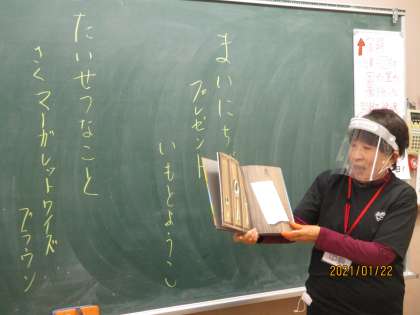 まいにち
プレゼント
いもとようこ
たいせつなこと
さく マーガレットワイズ
ブラウン
2021/01/22